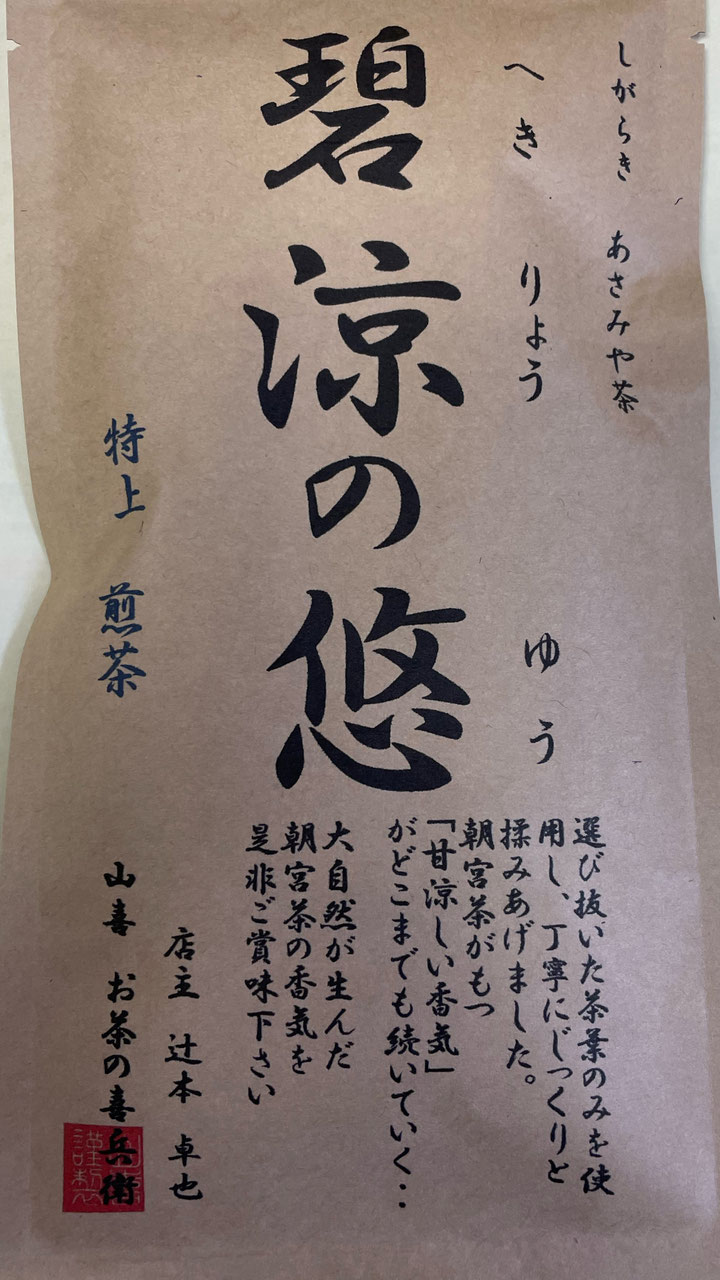 しがらき あさみや茶
へき りょう ゆう
碧涼の悠
選び抜いた茶葉のみを使
用し、丁寧にじっくりと
揉みあげました。
朝宮茶がもつ
「甘涼しい香気」
がどこまでも続いていく・・
大自然が生んだ
朝宮茶の香気を
是非ご賞味下さい
特上 煎茶
店主 辻本 卓也
山喜 お茶の喜兵衛